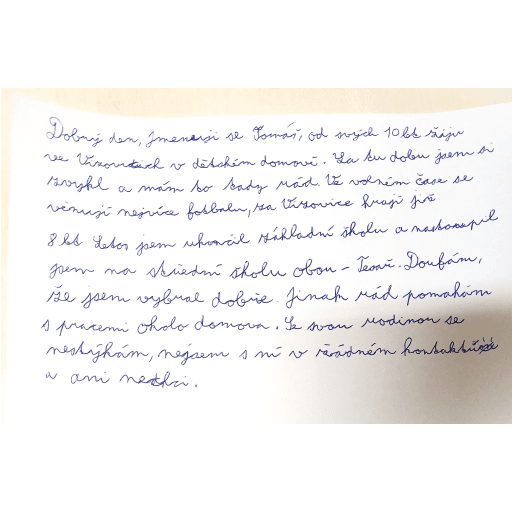 Dobrý den, jmenuji se Tomáš, od svých 10 let žiju
ve Vizovicích v dětském domově. Za tu dobu jsem si
zvykl a mám to tady rád. Ve volném čase se
věnuji nejvíce fotbalu, za Vizovice hraji již
8 let. Letos jsem ukončil základní školu a nastoupil
jsem na střední školu obou - Tesař. Doufám,
že jsem vybral dobře. Jinak rád pomahám
s pracemi okolo domova. Se svou rodinou se
nestýkám, nejsem s ní v řádném kontaktu
a ani nechci.